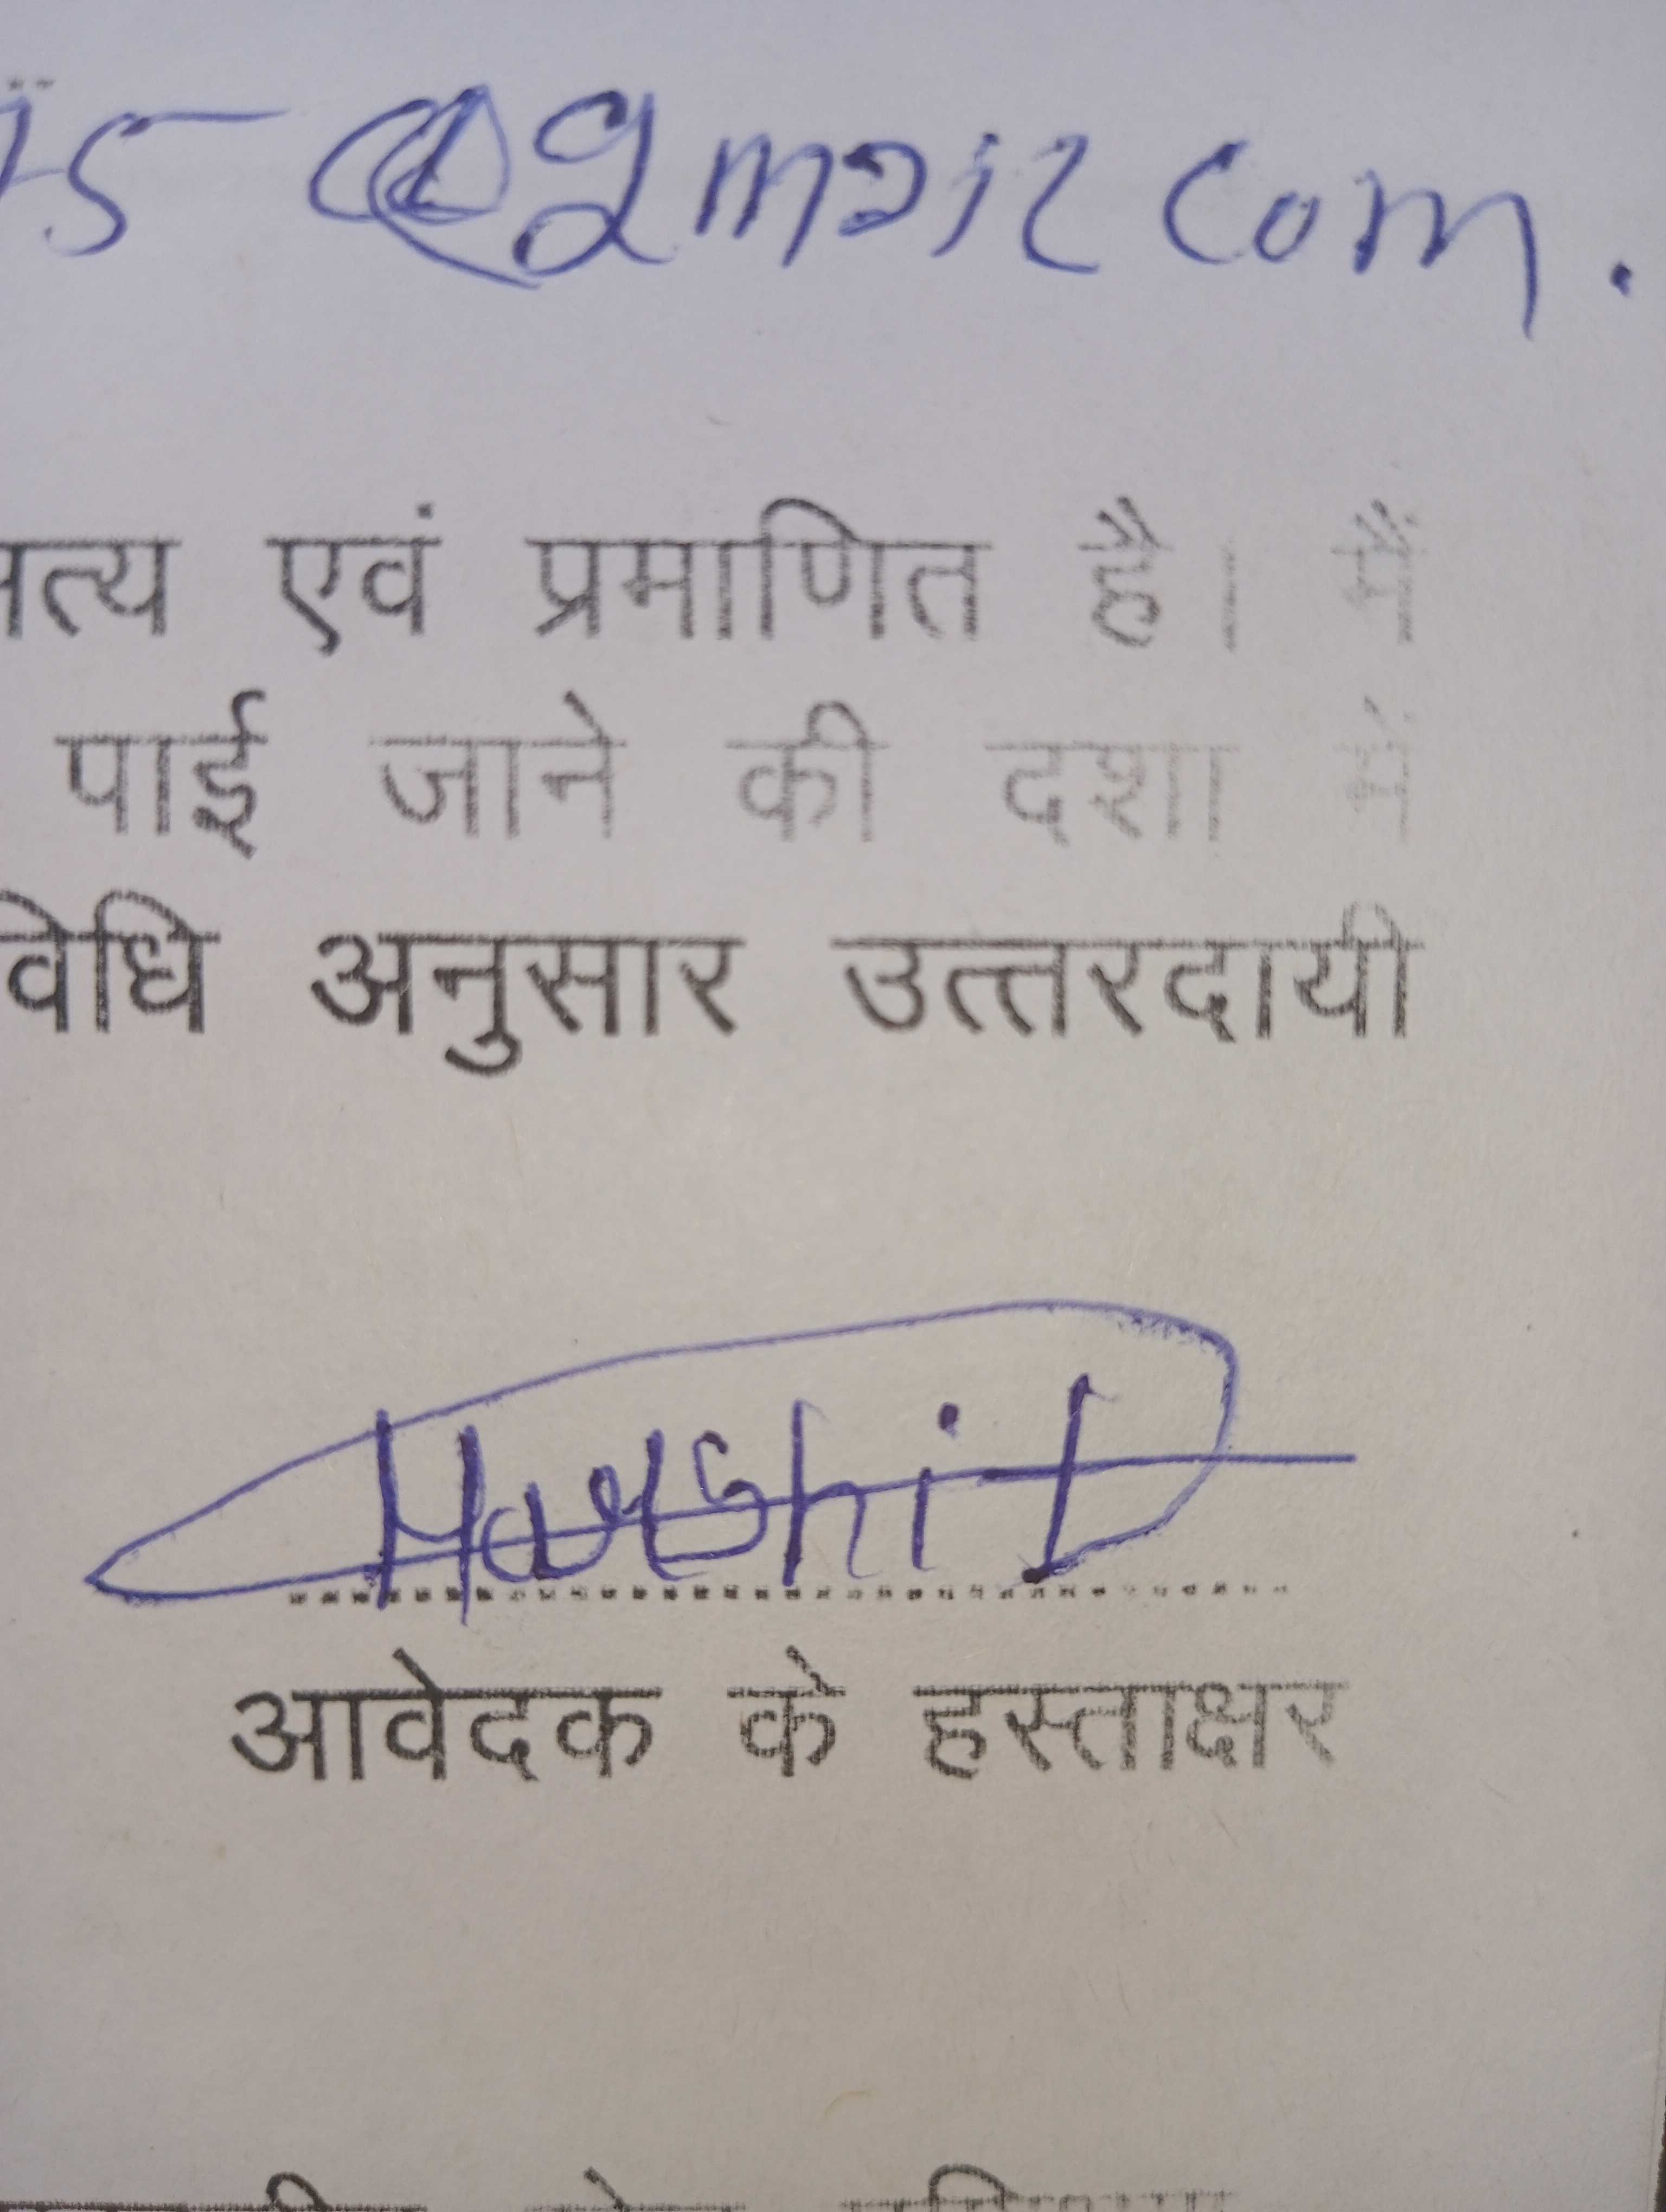 75 @gmail com.
सत्य एवं प्रमाणित है। मैं
पाई जाने की दशा में
विधि अनुसार उत्तरदायी
Harshit
आवेदक के हस्ताक्षर